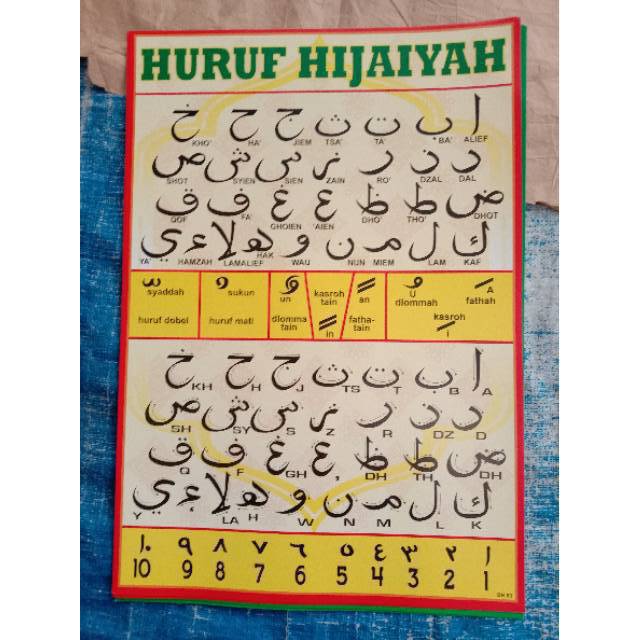 HURUF HIJAIYAH
ا ب ت ث ج ح خ
KHO' HA' JIEM TSA' TA' BA' ALIEF
د ذ ر ز س ش ص
SHOT SYIEN SIEN ZAIN RO' DZAL DAL
ض ط ظ ع غ ف ق
QOF FA' GHOIEN 'AIEN DHO' THO' DHOT
ك ل م ن و ه لا ء ي
YA' HAMZAH LAMALIEF HAK WAU NUN MIEM LAM KAF
syaddah sukun un kasroh tain an U dlommah A fathah
huruf dobel huruf mati dlomma tain in fatha-tain kasroh i
ا ب ت ث ج ح خ
KH H J TS T B A
د ذ ر ز س ش ص
SH SY S Z R DZ D
ض ط ظ ع غ ف ق
Q F GH DH TH DH
ك ل م ن و ه لا ء ي
Y LA H W N M L K
١ ٢ ٣ ٤ ٥ ٦ ٧ ٨ ٩ ١٠
10 9 8 7 6 5 4 3 2 1